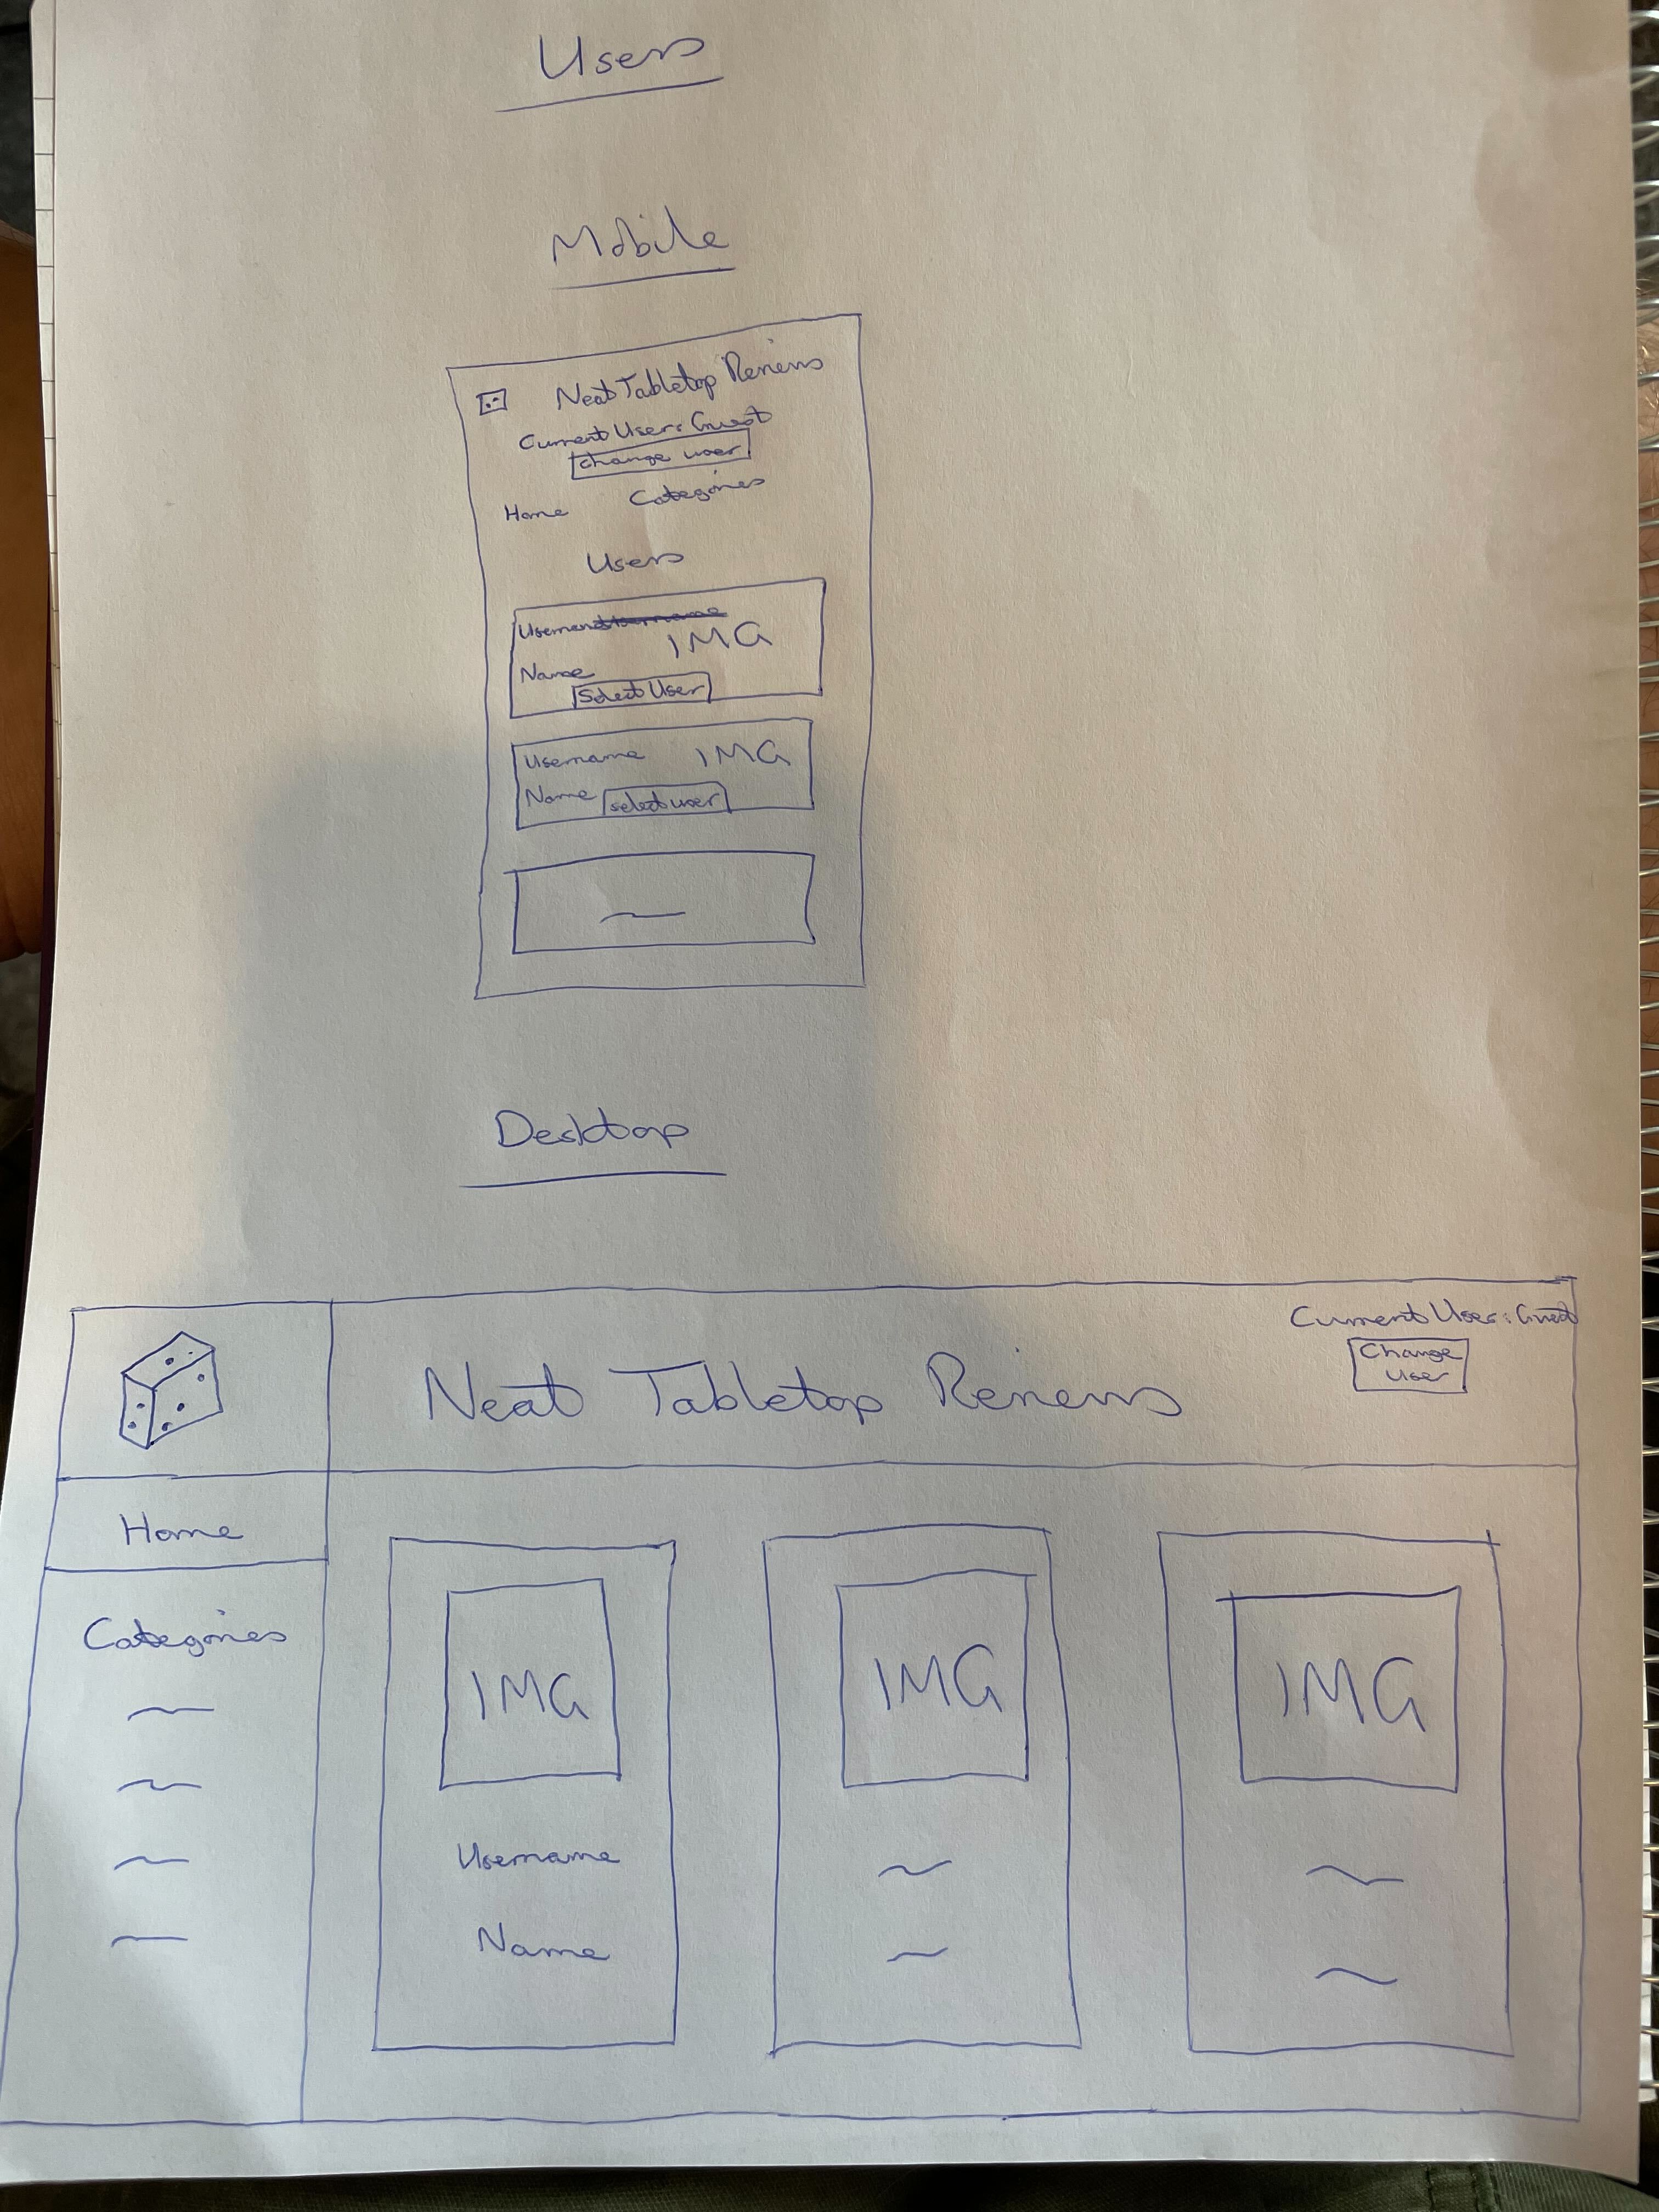 Users
Mobile
Neat Tabletop Reviews
Current User: Guest
change user
Home Categories
Users
Username
IMG
Name
Select User
Username IMG
Name select user
Desktop
Current User: Guest
Change
User
Neat Tabletop Reviews
Home
Categories
IMG IMG IMG
Username
Name